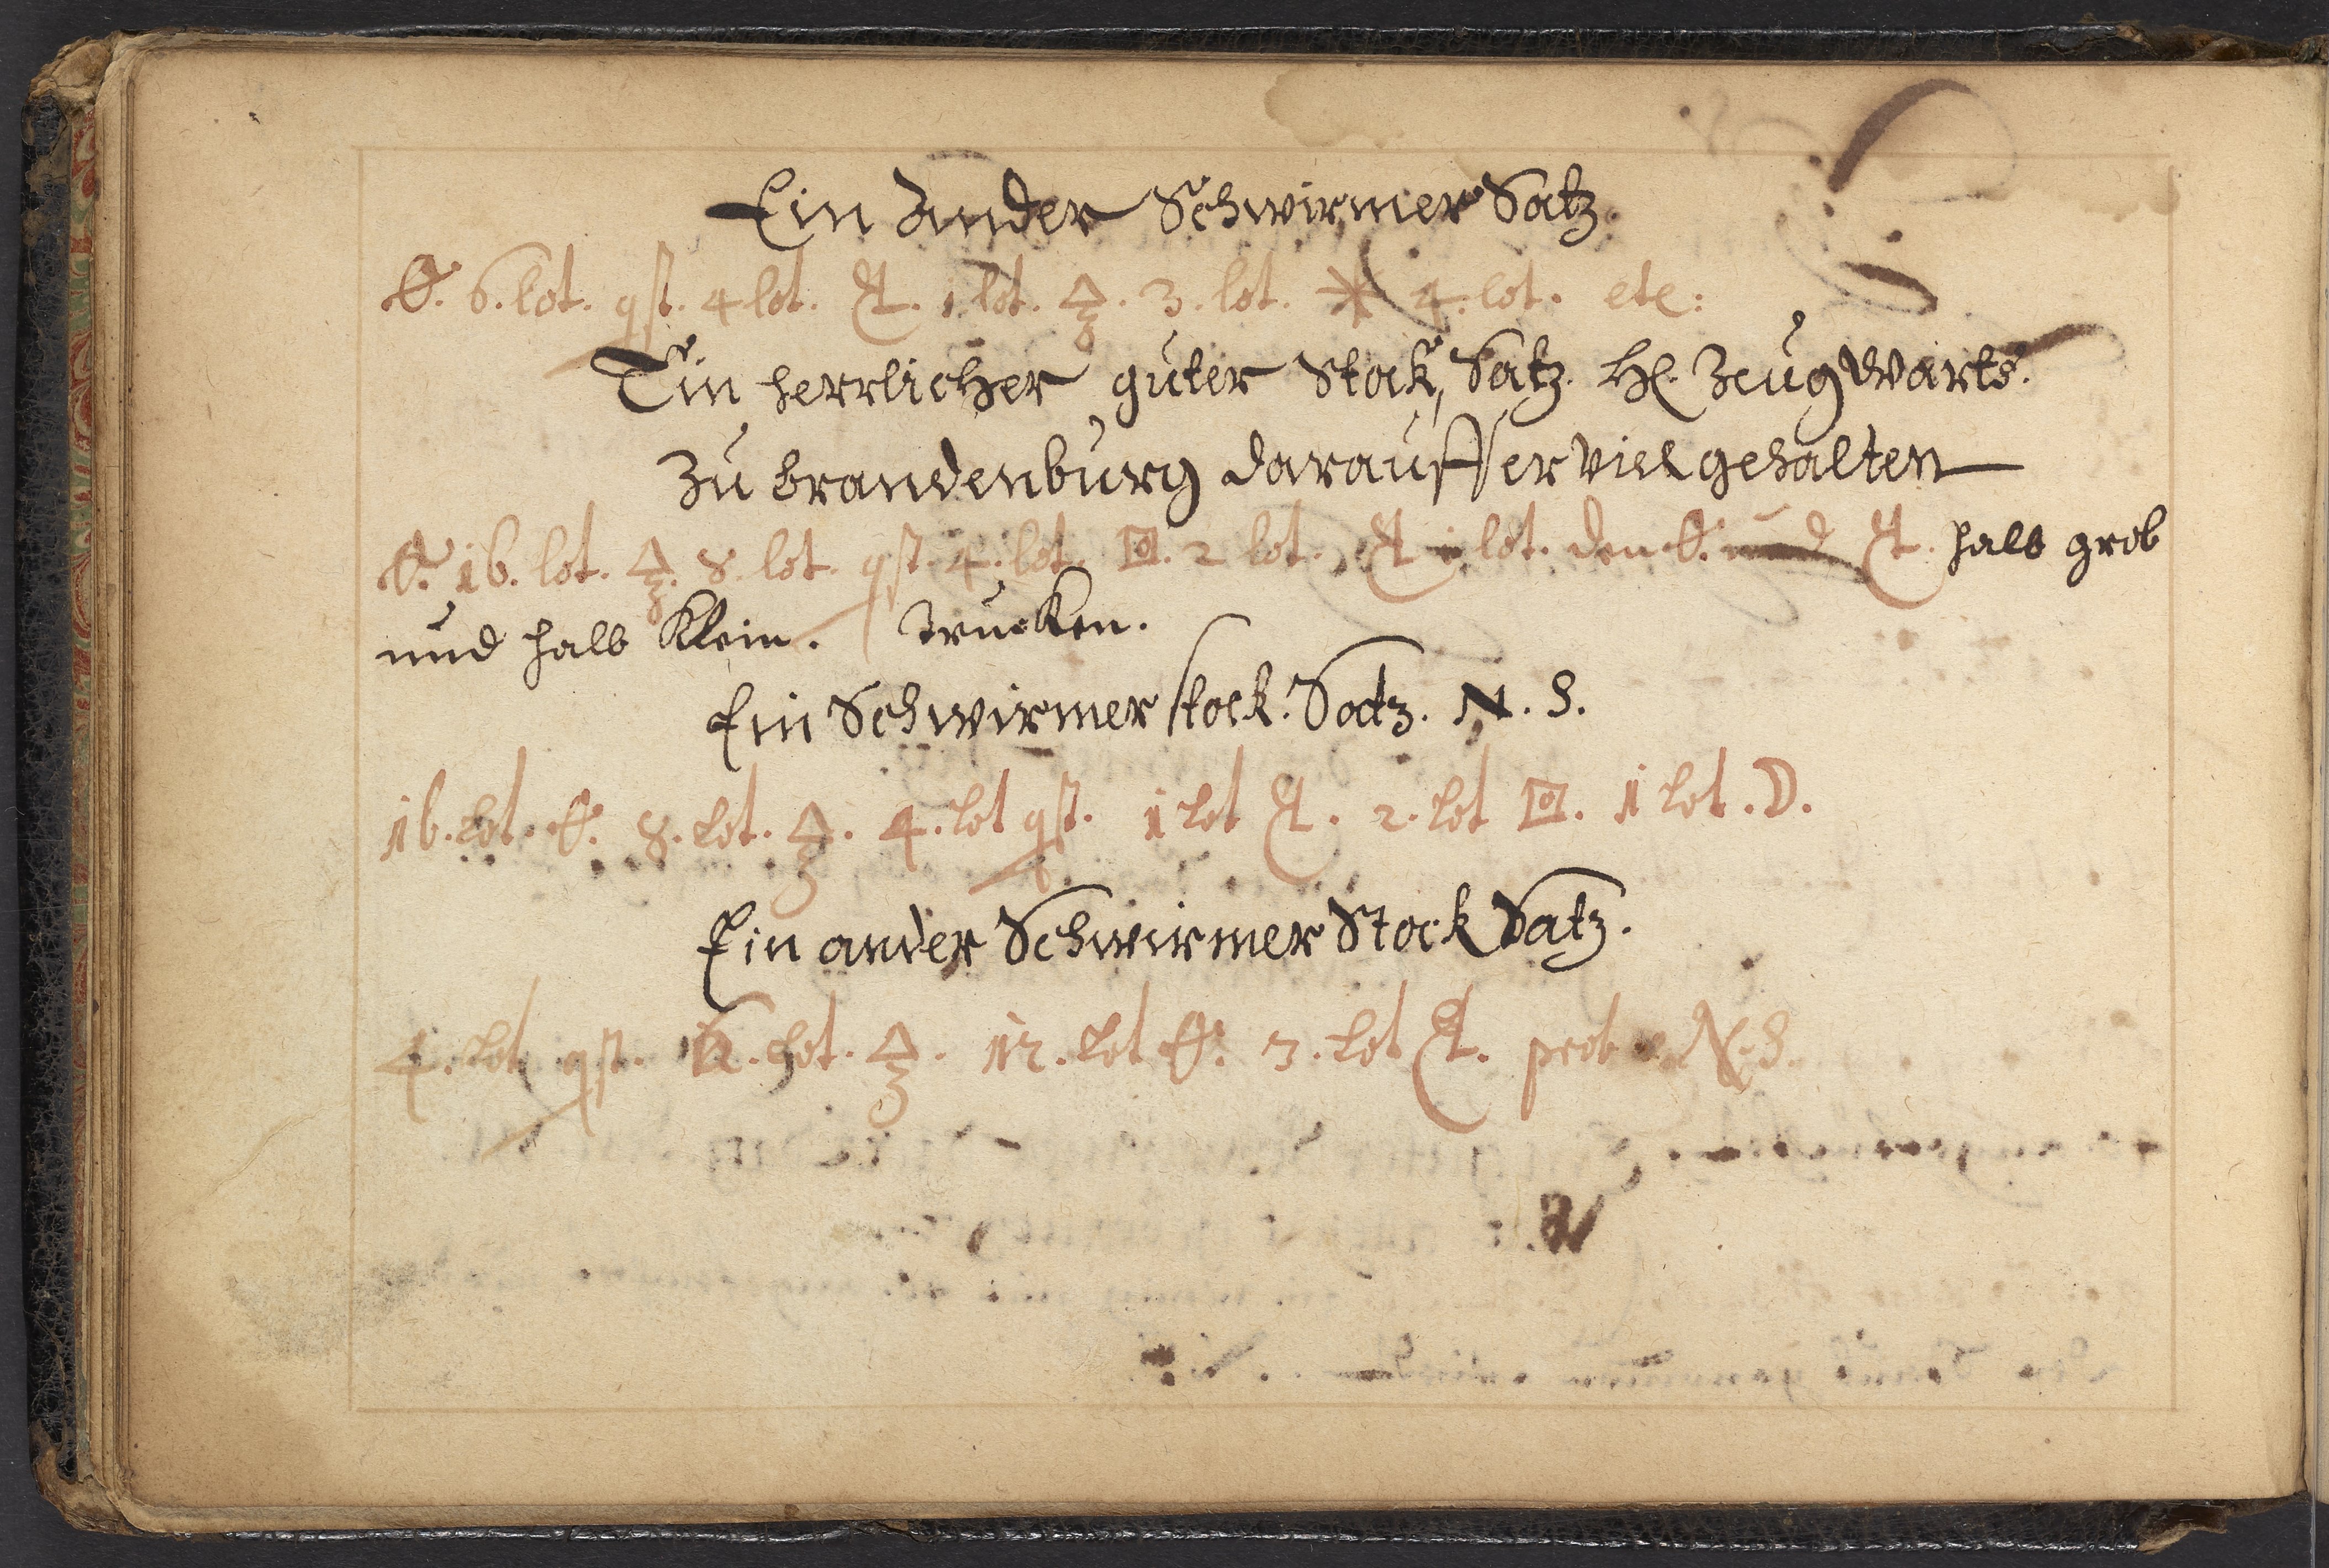 Ein Ander Schwirmer Satz.
6. lot. qst. 4 lot. 1 lot. 3. lot. 4. lot. etc:
Ein herrlicher guter Stock, Satz. H. Zeugwarts.
Zu Brandenburg darauff er viel gehalten
16. lot. 8. lot. qst. 4. lot. 2 lot. 1 lot. den und halb grob
und halb Klein. trucken.
Ein Schwirmer stock. Satz. N. S.
16. lot. 8. lot. 4. lot qst. 1 lot 2. lot 1 lot. D.
Ein ander Schwirmer Stock Satz.
4. lot qst. lot. 12. lot 3. lot prob N. S.